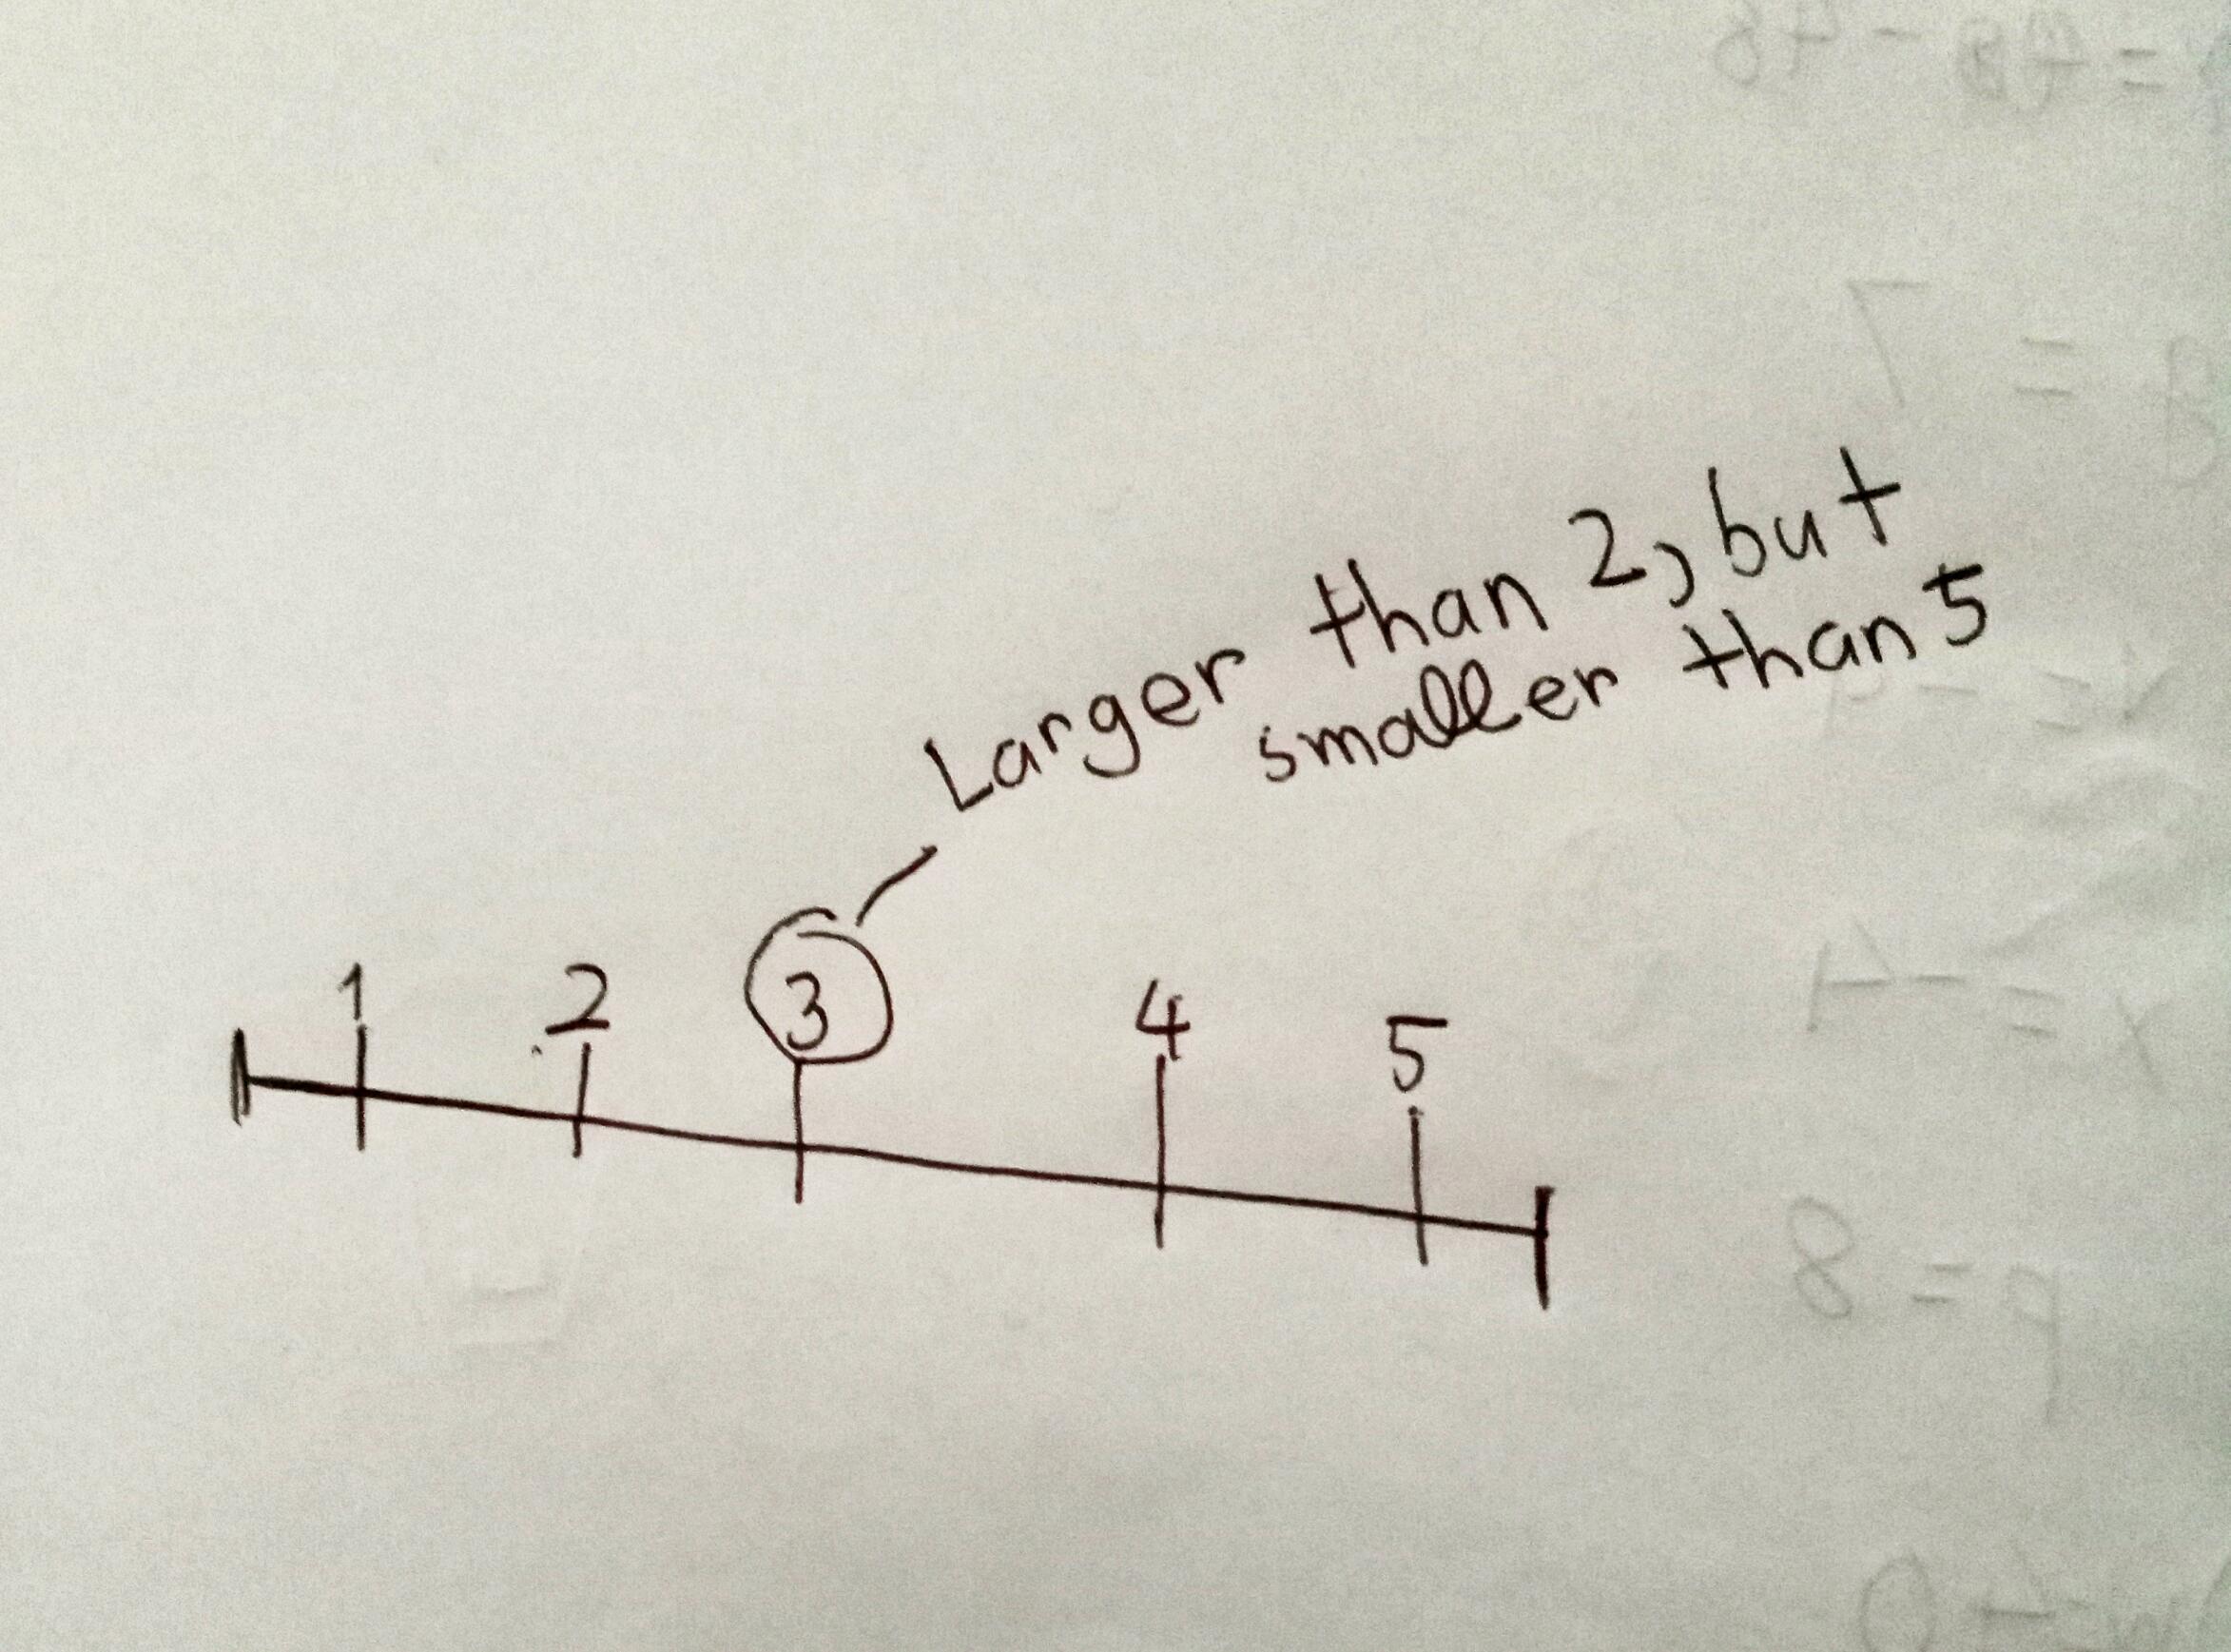 Larger than 2, but
smaller than 5
1 2 3 4 5